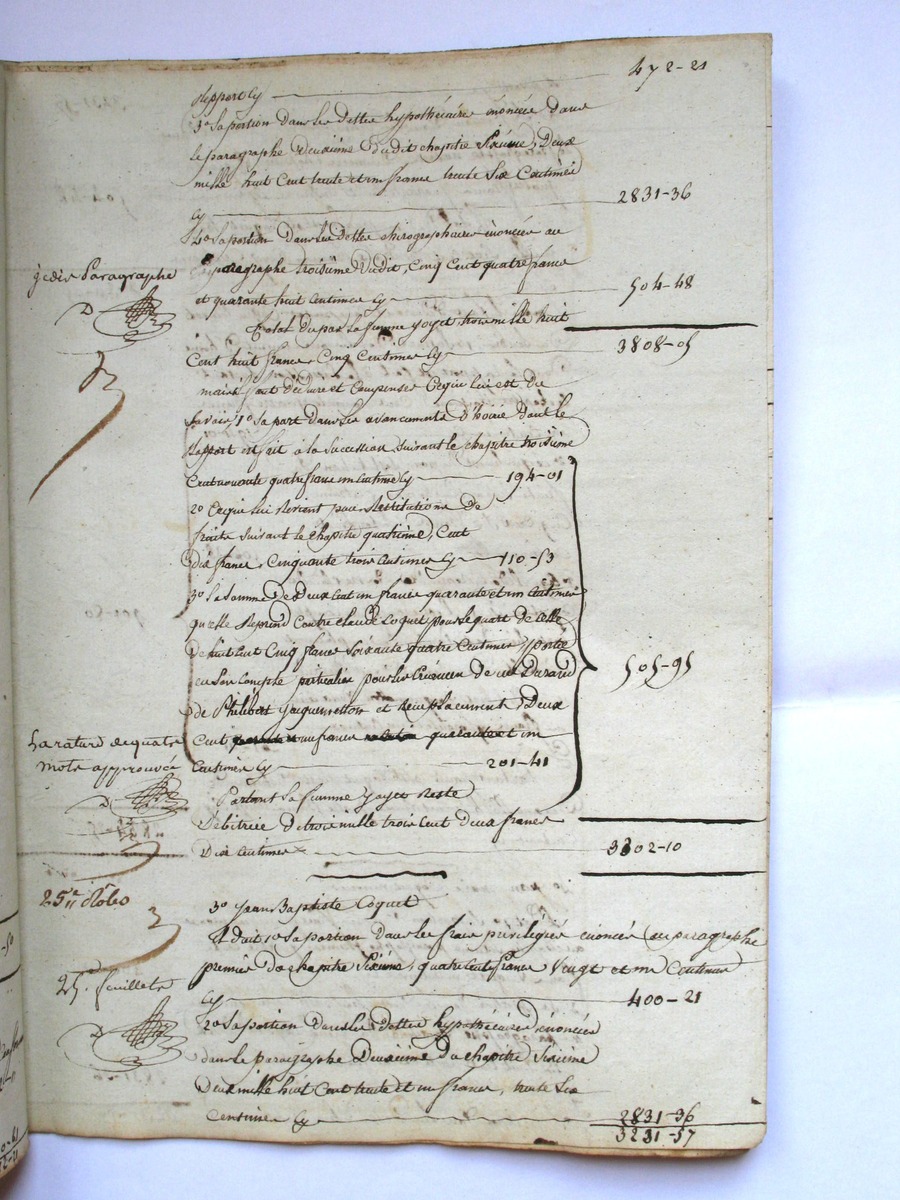 472-21
Report Cy
3o Sa portion dans les dettes hypothécaires énoncées dans
le paragraphe deuxième dudit chapitre Sixième, Deux
mille huit Cent trente et un francs trente Six Centimes
Cy 2831-36
4o Sa portion dans les dettes chirographaires énoncées au
paragraphe troisième dudit, Cinq Cent quatre francs
je dis Paragraphe
et quarante huit Centimes Cy 504-48
Total du par la femme yoyet trois mille huit
Cent huit francs Cinq Centimes Cy 3808-05
mais il faut déduire et Compenser Ce qui lui est du
Savoir 1o Sa part dans les avancements d'hoirie dont le
Rapport est fait à la Succession Suivant le chapitre troisième
Cent nonante quatre francs un Centime Cy 194-01
2o Ce qui lui Revient pour Restitutions de
fruits Suivant le Chapitre quatrième, Cent
dix francs Cinquante trois Centimes Cy 110-53
3o La Somme de Deux Cent un francs quarante et un Centimes
qu'elle Reprend Contre Claude Coquet pour le quart de Celle
de huit Cent Cinq francs Soixante quatre Centimes portée
en Son Compte particulier pour les Créances de
505-95
de Philibert et Deux
Cent un francs quarante et un
La rature de quatre
mots approuvée
Centimes Cy 201-41
Partant la femme yoyet Reste
Débitrice de trois mille trois Cent deux francs
Dix Centimes 3302-10
25e Rôles
3o Jean Baptiste Coquet
Il doit 1o Sa portion dans les frais privilégiés énoncés au paragraphe
premier du chapitre Sixième, quatre Cent francs Vingt et un Centimes
25e feuillets
Cy 400-21
2o Sa portion dans les dettes hypothécaires énoncées
dans le paragraphe Deuxième du chapitre Sixième
deux mille huit Cent trente et un francs, trente Six
Centimes Cy 2831-36
3231-57